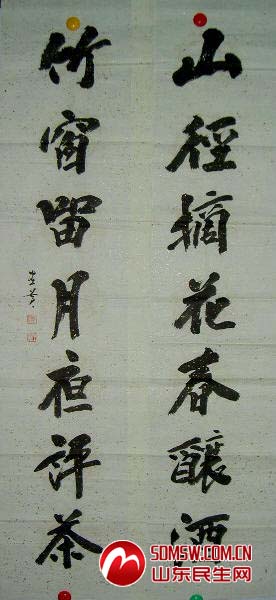 山径摘花春釀酒
竹窗留月夜評茶
SDMSW.COM.CN
山东民生网